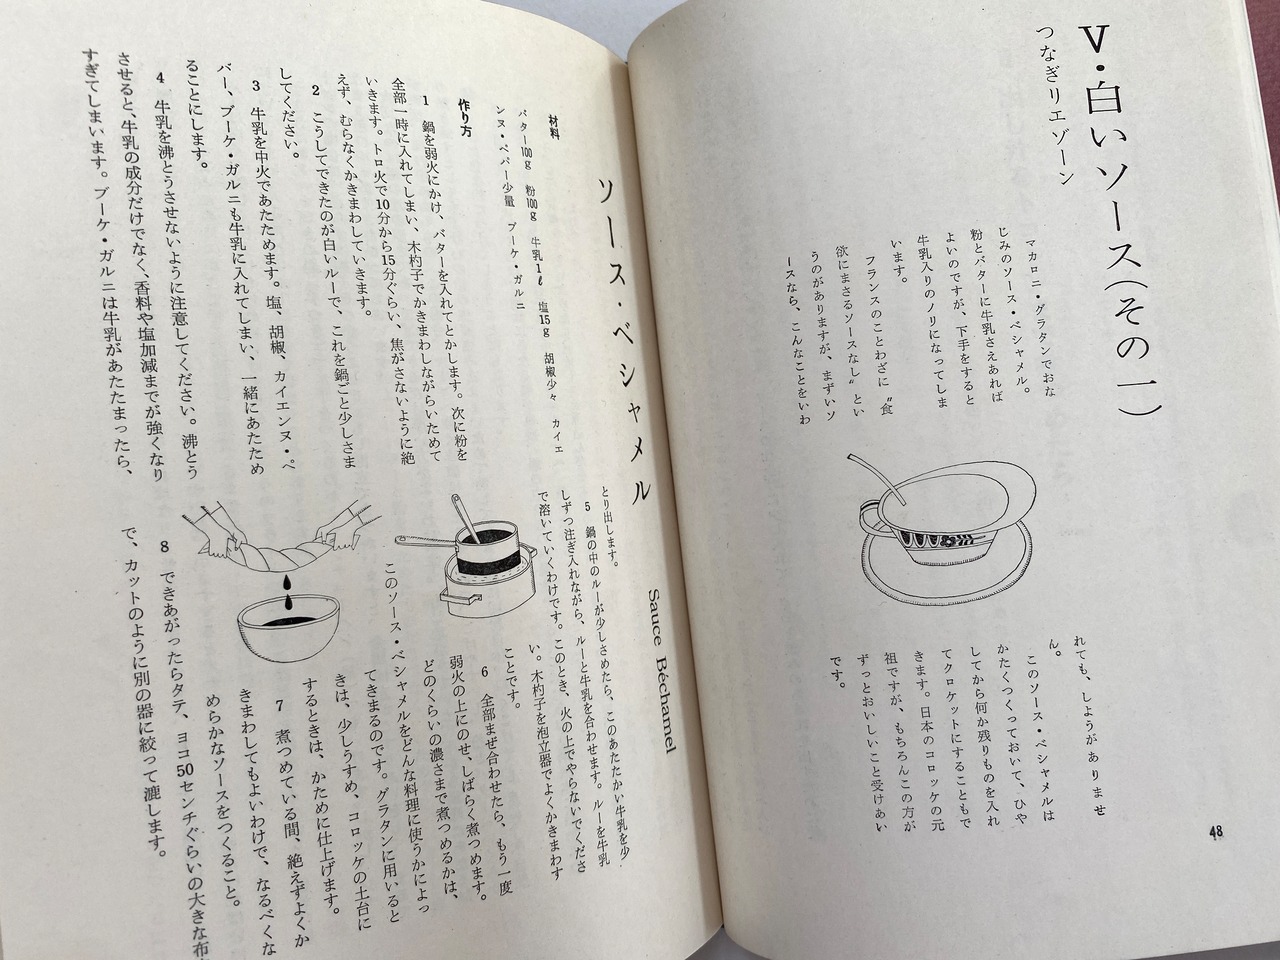 V・白いソース(その一)
つなぎリエゾーン
マカロニ・グラタンでおな
じみのソース・ベシャメル。
粉とバターに牛乳さえあれば
よいのですが、下手をすると
牛乳入りのノリになってしま
います。
フランスのことわざに〝食
欲にまさるソースなし〟とい
うのがありますが、まずいソ
ースなら、こんなことをいわ
れても、しようがありませ
ん。
このソース・ベシャメルは
かたくつくっておいて、ひや
してから何か残りものを入れ
てクロケットにすることもで
きます。日本のコロッケの元
祖ですが、もちろんこの方が
ずっとおいしいこと受けあい
です。
48
ソース・ベシャメル Sauce Béchamel
材料
バター100g 粉100g 牛乳1ℓ 塩15g 胡椒少々 カイエ
ンヌ・ペパー少量 ブーケ・ガルニ
作り方
1 鍋を弱火にかけ、バターを入れてとかします。次に粉を
全部一時に入れてしまい、木杓子でかきまわしながらいためて
いきます。トロ火で10分から15分ぐらい、焦がさないように絶
えず、むらなくかきまわしていきます。
2 こうしてできたのが白いルーで、これを鍋ごと少しさま
してください。
3 牛乳を中火であたためます。塩、胡椒、カイエンヌ・ペ
パー、ブーケ・ガルニも牛乳に入れてしまい、一緒にあたため
ることにします。
4 牛乳を沸とうさせないように注意してください。沸とう
させると、牛乳の成分だけでなく、香料や塩加減までが強くなり
すぎてしまいます。ブーケ・ガルニは牛乳があたたまったら、
とり出します。
5 鍋の中のルーが少しさめたら、このあたたかい牛乳を少
しずつ注ぎ入れながら、ルーと牛乳を合わせます。ルーを牛乳
で溶いていくわけです。このとき、火の上でやらないでくださ
い。木杓子を泡立器でよくかきまわす
ことです。
6 全部まぜ合わせたら、もう一度
弱火の上にのせ、しばらく煮つめます。
どのくらいの濃さまで煮つめるかは、
このソース・ベシャメルをどんな料理に使うかによっ
てきまるのです。グラタンに用いると
きは、少しうすめ、コロッケの土台に
するときは、かために仕上げます。
7 煮つめている間、絶えずよくか
きまわしてもよいわけで、なるべくな
めらかなソースをつくること。
8 できあがったらタテ、ヨコ50センチぐらいの大きな布
で、カットのように別の器に絞って漉します。